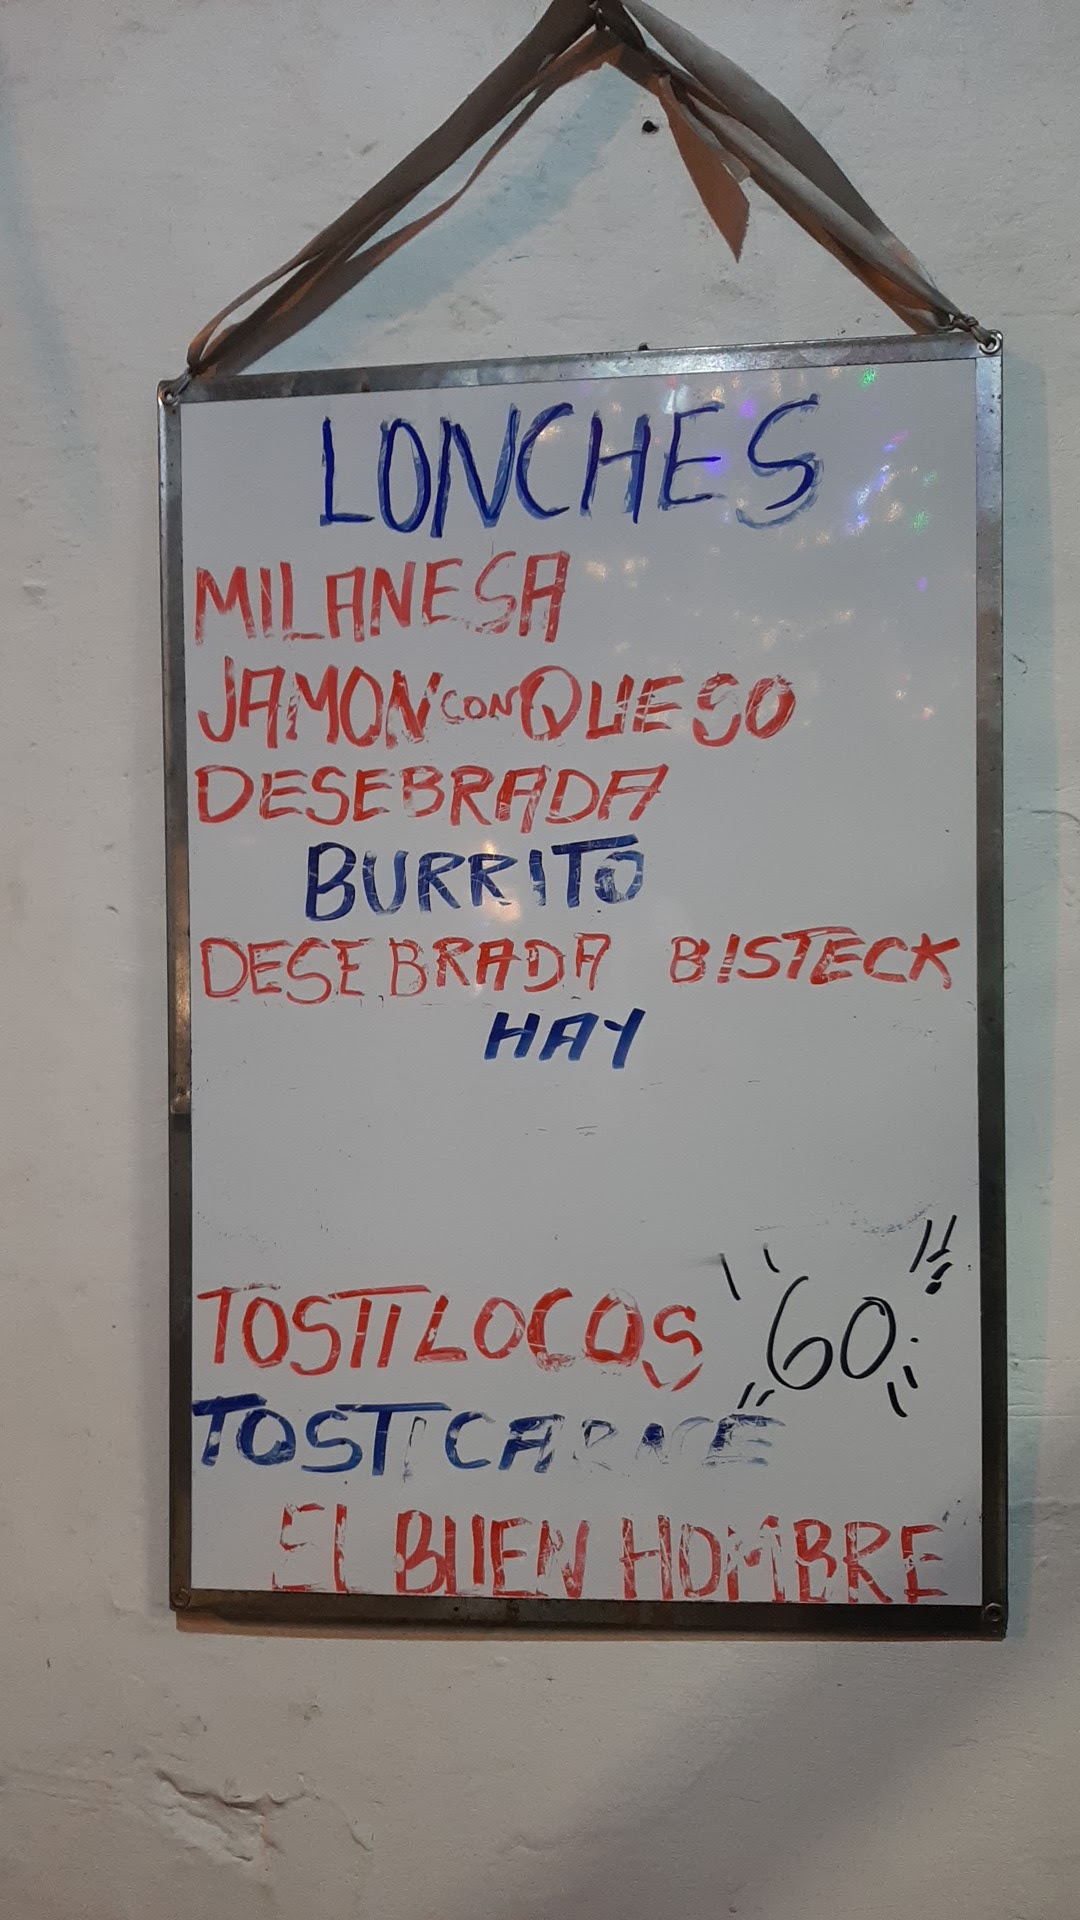 LONCHES
MILANESA
JAMON CON QUESO
DESEBRADA
BURRITO
DESEBRADA BISTECK
HAY
TOSTILOCOS "60"
TOSTICARNE
EL BUEN HOMBRE